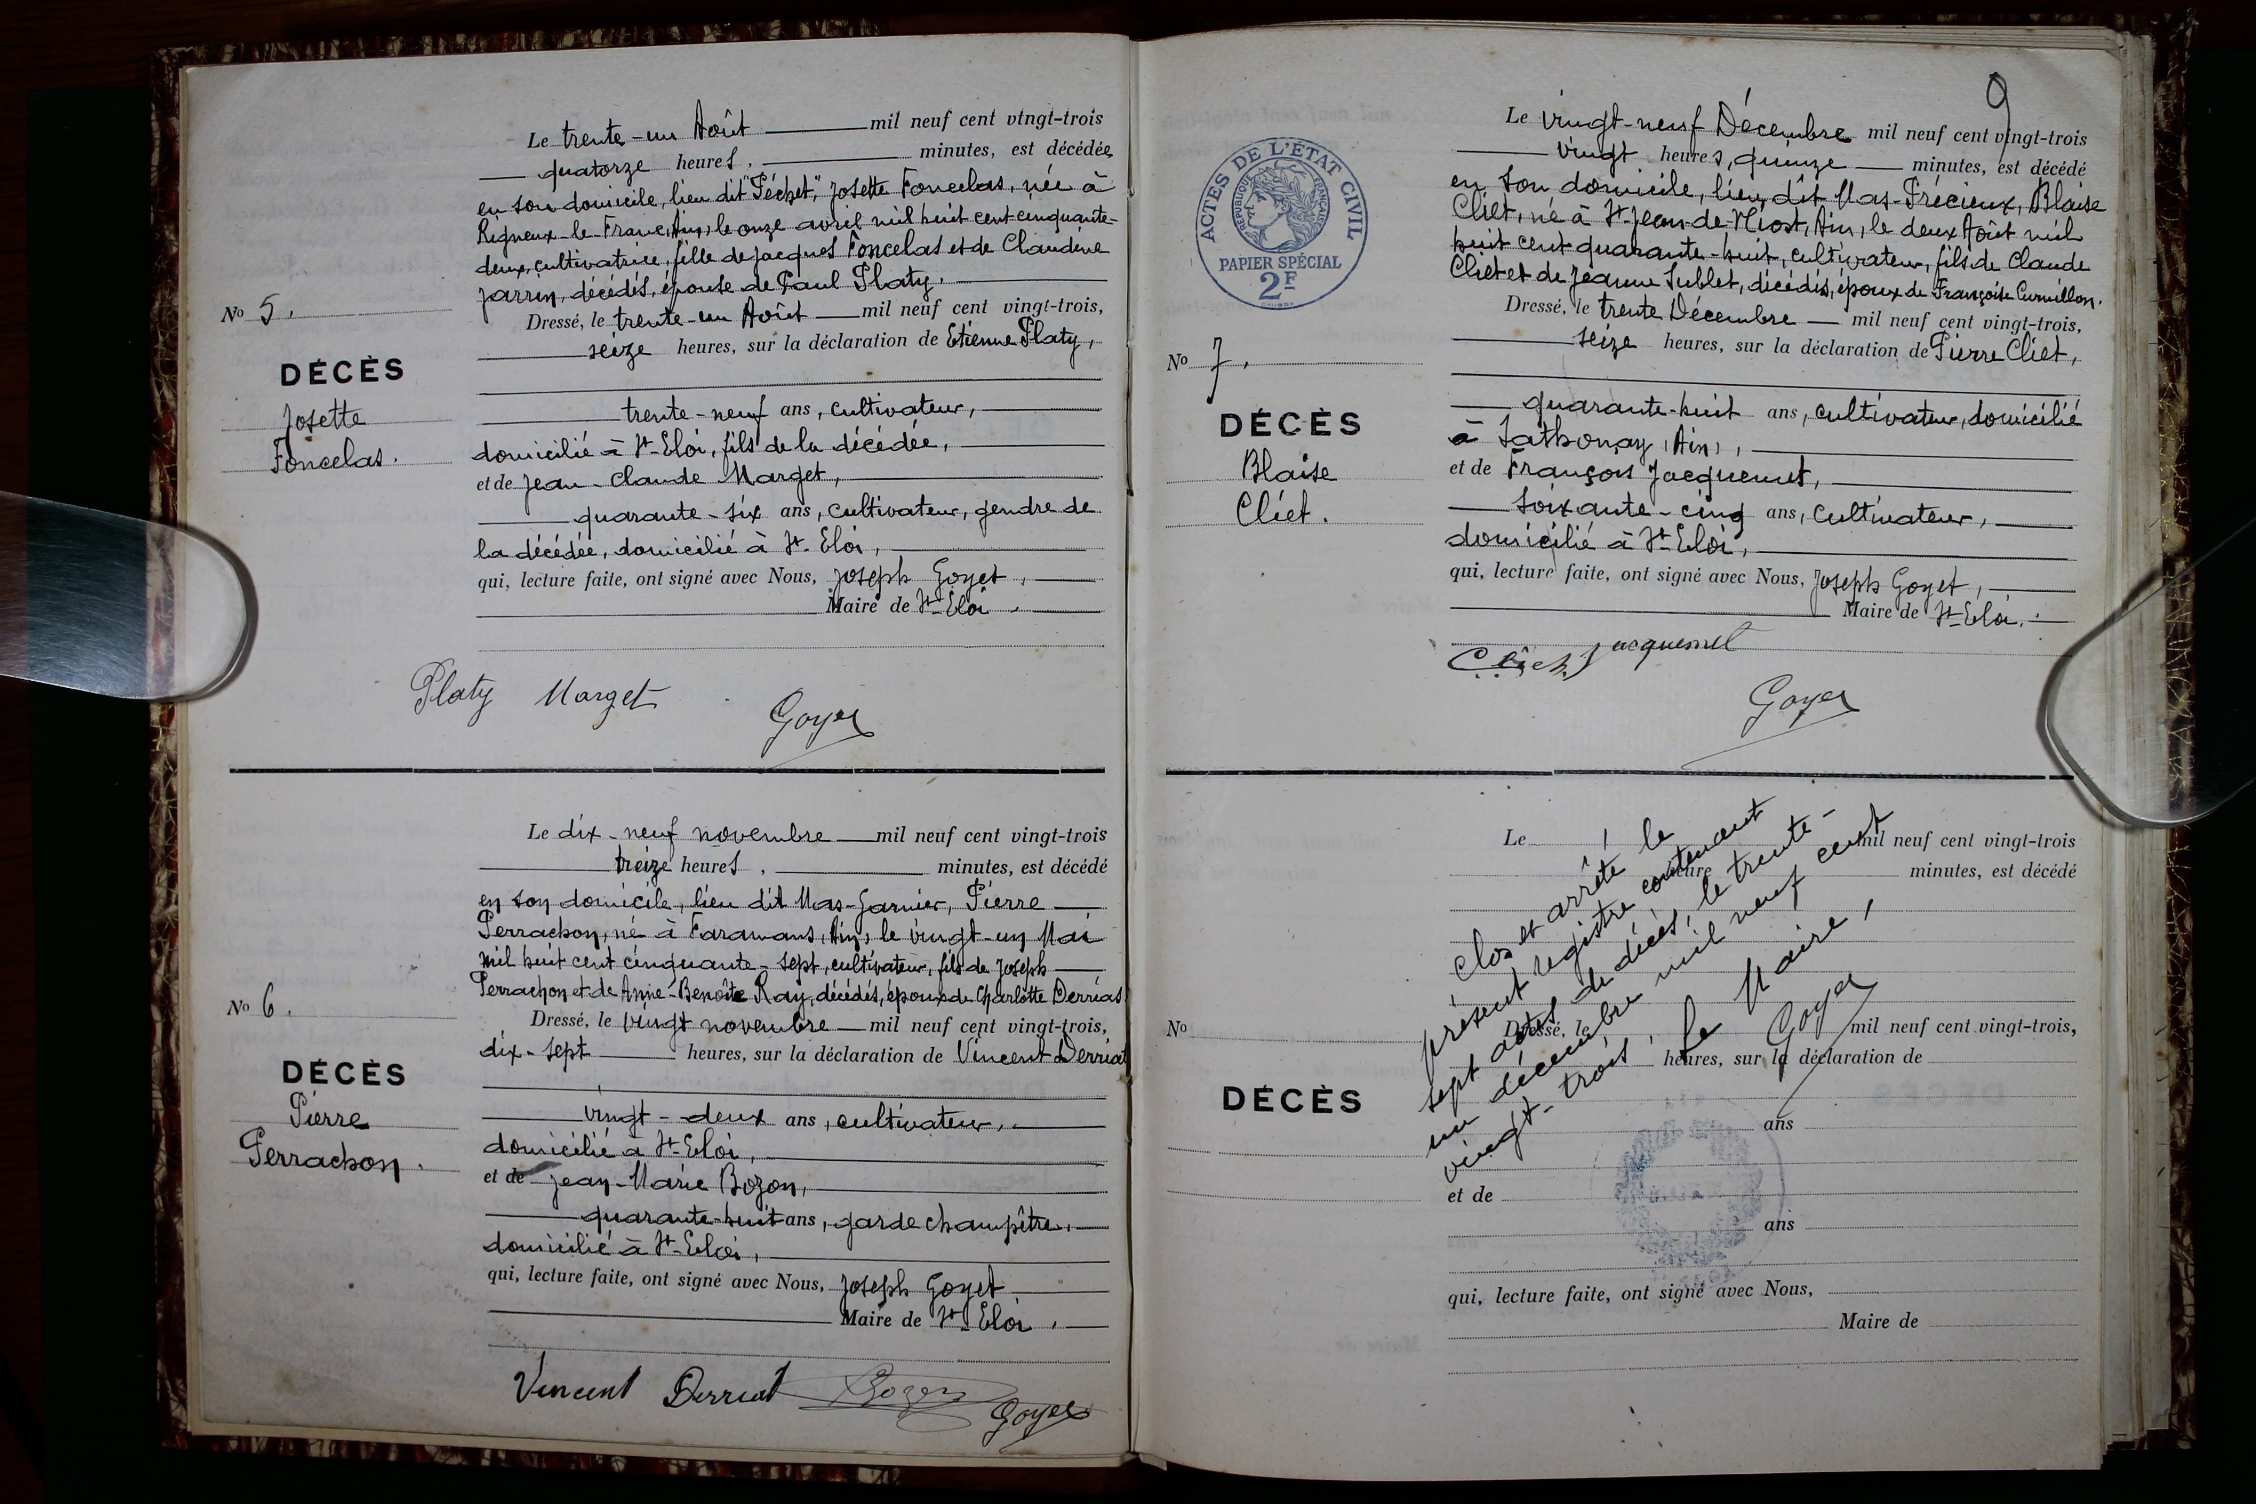 Le trente-un Août mil neuf cent vingt-trois
quatorze heures, minutes, est décédée
en son domicile, lieu dit "Péchet", Josette Foncelas, née à
Rigneux-le-Franc, Ain, le onze avril mil huit cent cinquante-
deux, cultivatrice, fille de Jacques Foncelas et de Claudine
Jarrin, décédés, épouse de Paul Platy.
No 5.
Dressé, le trente-un Août mil neuf cent vingt-trois,
seize heures, sur la déclaration de Etienne Platy,
DÉCÈS
Josette
Foncelas.
trente-neuf ans, cultivateur,
domicilié à St-Eloi, fils de la décédée,
et de Jean-Claude Marget,
quarante-six ans, cultivateur, gendre de
la décédée, domicilié à St-Eloi,
qui, lecture faite, ont signé avec Nous, Joseph Goyet,
Maire de St-Eloi.
Platy Marget
Goyet
Le dix-neuf novembre mil neuf cent vingt-trois
treize heures, minutes, est décédé
en son domicile, lieu dit Mas-Garnier, Pierre
Perrachon, né à Faramans, Ain, le vingt-un Mai
mil huit cent cinquante-sept, cultivateur, fils de Joseph
Perrachon et de Anne-Benoîte Ray, décédés, époux de Charlotte Derrias.
No 6.
Dressé, le vingt novembre mil neuf cent vingt-trois,
dix-sept heures, sur la déclaration de Vincent Derriat
DÉCÈS
Pierre
Perrachon.
vingt-deux ans, cultivateur,
domicilié à St-Eloi,
et de Jean-Marie Bozon,
quarante-huit ans, garde champêtre,
domicilié à St-Eloi,
qui, lecture faite, ont signé avec Nous, Joseph Goyet
Maire de St-Eloi.
Vincent Derriat Bozon
Goyet
9
ACTES DE L'ÉTAT CIVIL
RÉPUBLIQUE FRANÇAISE
PAPIER SPÉCIAL
2F
Le vingt-neuf Décembre mil neuf cent vingt-trois
vingt heures, quinze minutes, est décédé
en son domicile, lieu dit Mas-Précieux, Blaise
Cliet, né à St-Jean-de-Niost, Ain, le deux Août mil
huit cent quarante-huit, cultivateur, fils de Claude
Cliet et de Jeanne Sublet, décédés, époux de Françoise Curvillon.
Dressé, le trente Décembre mil neuf cent vingt-trois,
seize heures, sur la déclaration de Pierre Cliet,
No 7.
DÉCÈS
Blaise
Cliet.
quarante-huit ans, cultivateur, domicilié
à Sathonay, Ain,
et de François Jacquemet,
soixante-cinq ans, cultivateur,
domicilié à St-Eloi,
qui, lecture faite, ont signé avec Nous, Joseph Goyet,
Maire de St-Eloi.
Cliet Jacquemet
Goyet
Le mil neuf cent vingt-trois
heure minutes, est décédé
Clos et arrêté le
présent registre contenant
sept actes de décès, le trente-
un décembre mil neuf cent
vingt-trois.
Le Maire,
Goyet
No
Dressé, le mil neuf cent vingt-trois,
heures, sur la déclaration de
DÉCÈS
ans
et de
ans
qui, lecture faite, ont signé avec Nous,
Maire de